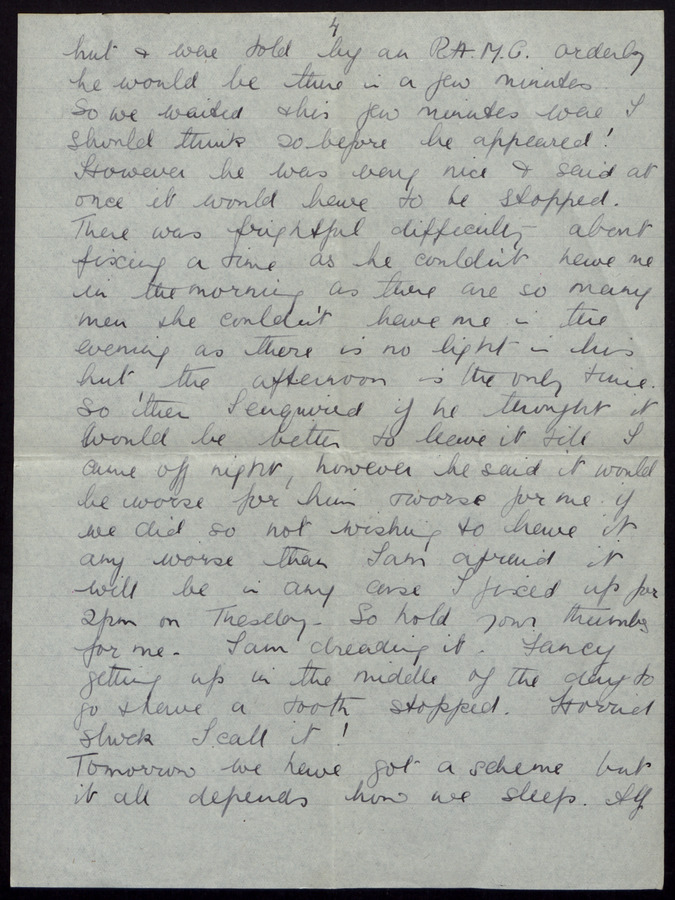 4
hut & were told by an R.A.M.C. orderly
he would be there in a few minutes.
So we waited & his few minutes were I
should think so before he appeared!
However he was very nice & said at
once it would have to be stopped.
There was frightful difficulty about
fixing a time as he couldn't have me
in the morning as there are so many
men & he couldn't have me in the
evening as there is no light in his
hut the afternoon is the only time.
So then I enquired if he thought it
would be better to leave it till I
came off night, however he said it would
be worse for him & worse for me if
we did so not wishing to have it
any worse than I am afraid it
will be in any case I fixed up for
2pm on Tuesday. So hold your thumbs
for me. I am dreading it. Fancy
getting up in the middle of the day to
go & have a tooth stopped. Horrid
shock I call it!
Tomorrow we have got a scheme but
it all depends how we sleep.